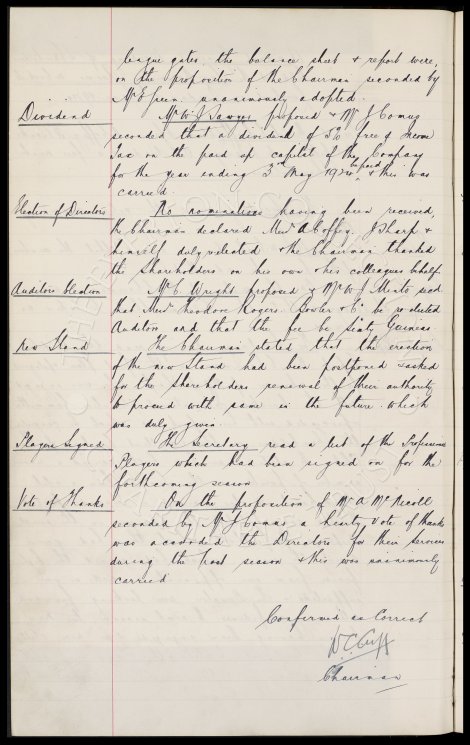 league gates, the balance sheet & report were,
on the proposition of the Chairman seconded by
Mr E Green unanimously adopted.
Dividend
Mr W J Sawyer proposed & Mr J
seconded that a dividend of 5% free of Income
Tax on the paid up capital of the Company
for the year ending 3rd May 1924 be paid & this was
carried.
Election of Directors
No nominations having been received,
the Chairman declared Messrs A Coffey, J Sharp &
himself duly reelected & the Chairman thanked
the shareholders on his own & his colleagues behalf
Auditors Election
Mr C Wright proposed & Mr W J secd
that Messrs Theodore Rogers Bowler & Co be re-elected
Auditors and that the fee be Sixty Guineas.
New Stand
The Chairman stated that the erection
of the new Stand had been postponed & asked
for the shareholders renewal of their authority
to proceed with same in the future which
was duly given.
Players Signed
The Secretary read a list of the Professional
Players which had been signed on for the
forthcoming season
Vote of Thanks
On the proposition of Mr A McNicoll
seconded by Mr J a hearty vote of thanks
was accorded the Directors for their services
during the past season & this was unanimously
carried
Confirmed as Correct
W.C. Cuff
Chairman